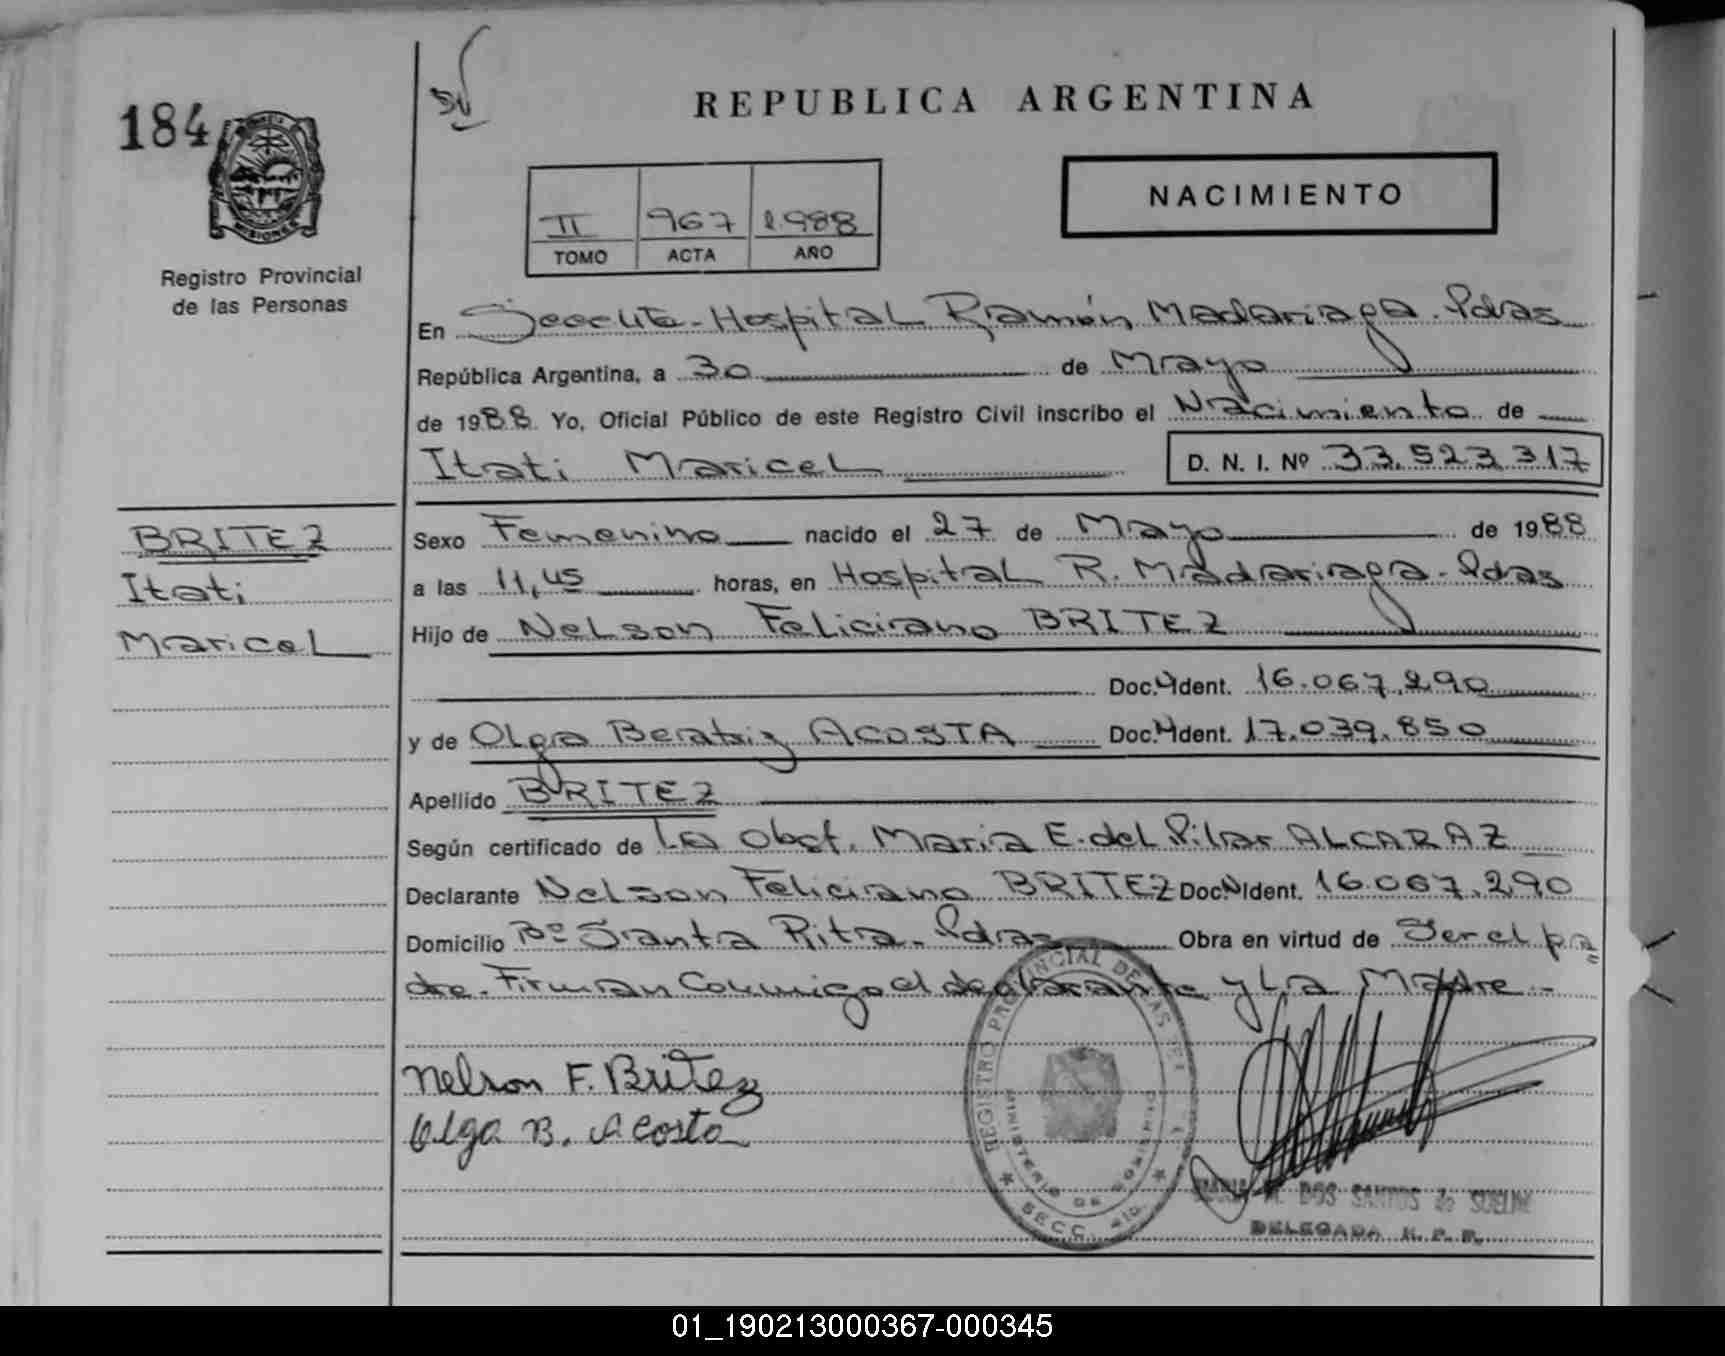 184
REPUBLICA ARGENTINA
MISIONES
Registro Provincial
de las Personas
II 967 1.988
TOMO ACTA AÑO
NACIMIENTO
En Seccute-Hospital Ramón Madariaga-Pdas
República Argentina, a 30 de Mayo
de 1988 Yo, Oficial Público de este Registro Civil inscribo el Nacimiento de
Itati Maricel D. N. I. Nº 33.523.317
BRITEZ
Itati
Maricel
Sexo Femenino nacido el 27 de Mayo de 1988
a las 11,45 horas, en Hospital R. Madariaga-Pdas
Hijo de Nelson Feliciano BRITEZ
Doc. Ident. 16.067.290
y de Olga Beatriz ACOSTA Doc. Ident. 17.039.850
Apellido BRITEZ
Según certificado de La Obst. Maria E. del Pilar ALCARAZ
Declarante Nelson Feliciano BRITEZ Doc. Ident. 16.067.290
Domicilio Bº Santa Rita-Pdas Obra en virtud de Ser el pa
dre-Firman Conmigo el declarante y La Madre-
Nelson F. Britez
Olga B. Acosta
REGISTRO PROVINCIAL DE LAS
MINISTERIO DE GOBIERNO
SECC. 410
DOS SANTOS de
DELEGADA R. P. P.
01_190213000367-000345